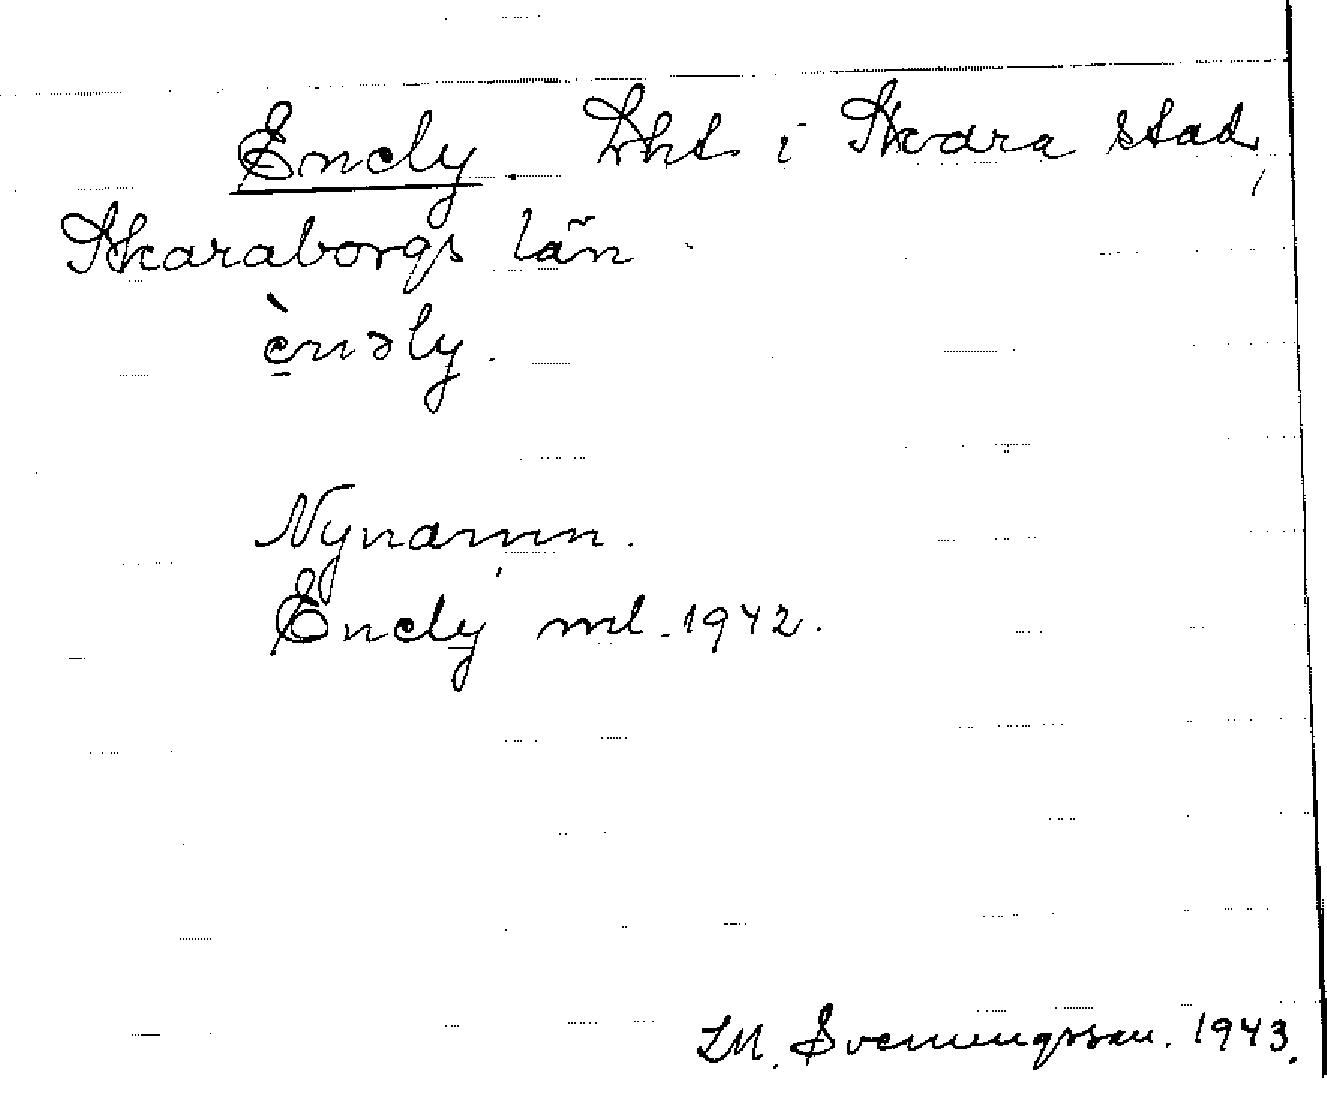 Enely. Lht i Skara stad,
Skaraborgs län
è̠nəly.
Nynamn.
Enely ml. 1942.
I.M. Svenungsson. 1943.